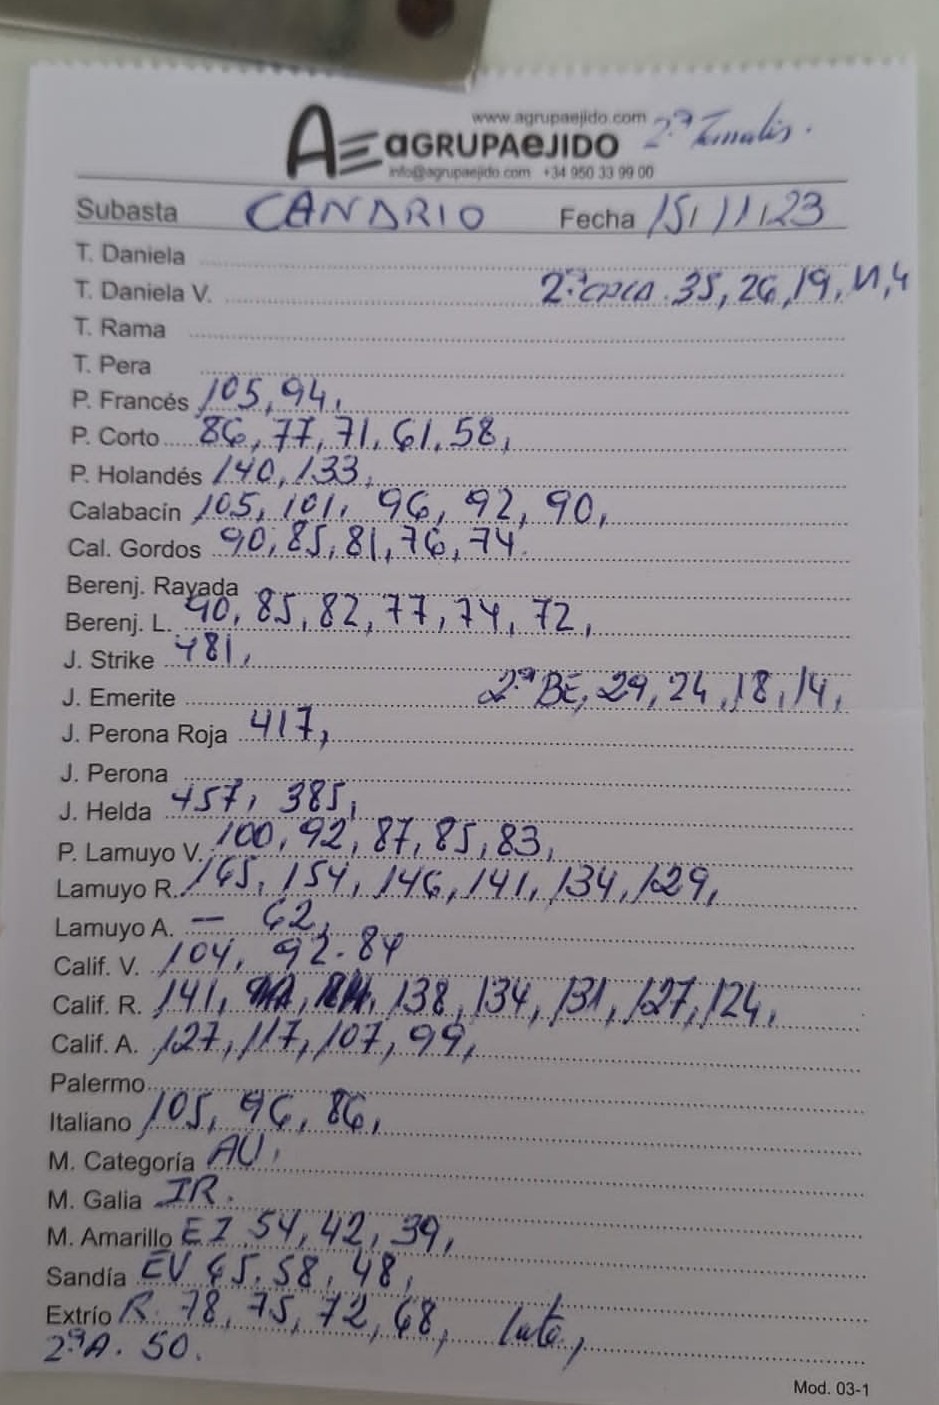 www.agrupaejido.com
AE aGRUPAeJIDO 2ª Tomatis.
info@agrupaejido.com +34 950 33 99 00
Subasta CANARIO Fecha 15/11/23
T. Daniela
T. Daniela V. 2ª 35, 26, 19, 11, 4
T. Rama
T. Pera
P. Francés 105, 94,
P. Corto 86, 77, 71, 61, 58,
P. Holandés 140, 133,
Calabacín 105, 101, 96, 92, 90,
Cal. Gordos 90, 85, 81, 76, 74.
Berenj. Rayada
Berenj. L. 90, 85, 82, 77, 74, 72,
J. Strike 481,
J. Emerite 2ª BE, 29, 24, 18, 14,
J. Perona Roja 417,
J. Perona
J. Helda 457, 385,
P. Lamuyo V. 100, 92, 87, 85, 83,
Lamuyo R. 165, 154, 146, 141, 134, 129,
Lamuyo A. — 62,
Calif. V. 104, 92. 84
Calif. R. 141, 138, 134, 131, 127, 124,
Calif. A. 127, 117, 107, 99,
Palermo
Italiano 105, 96, 86,
M. Categoría AU,
M. Galia IR.
M. Amarillo EI 54, 42, 39,
Sandía EV 65. 58, 48,
Extrío R. 78, 75, 72, 68,
2ª A. 50.
Mod. 03-1